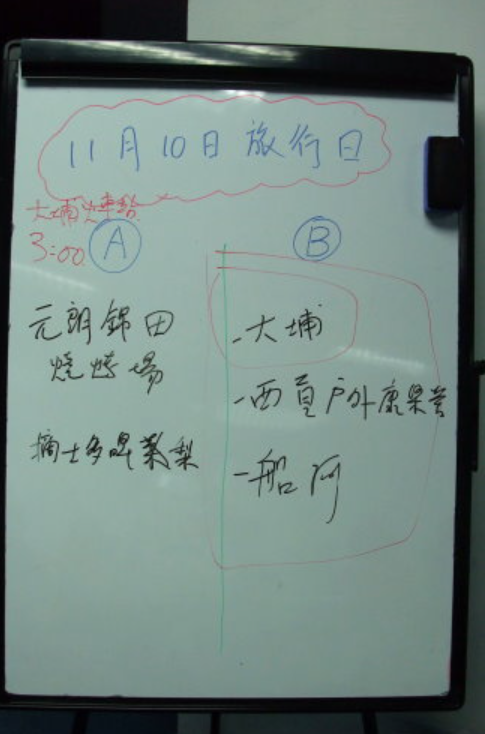 11月10日旅行日
大埔火車站
3:00
A
B
元朗錦田
燒烤場
摘士多啤梨
-大埔
-西貢戶外康樂營
-船河